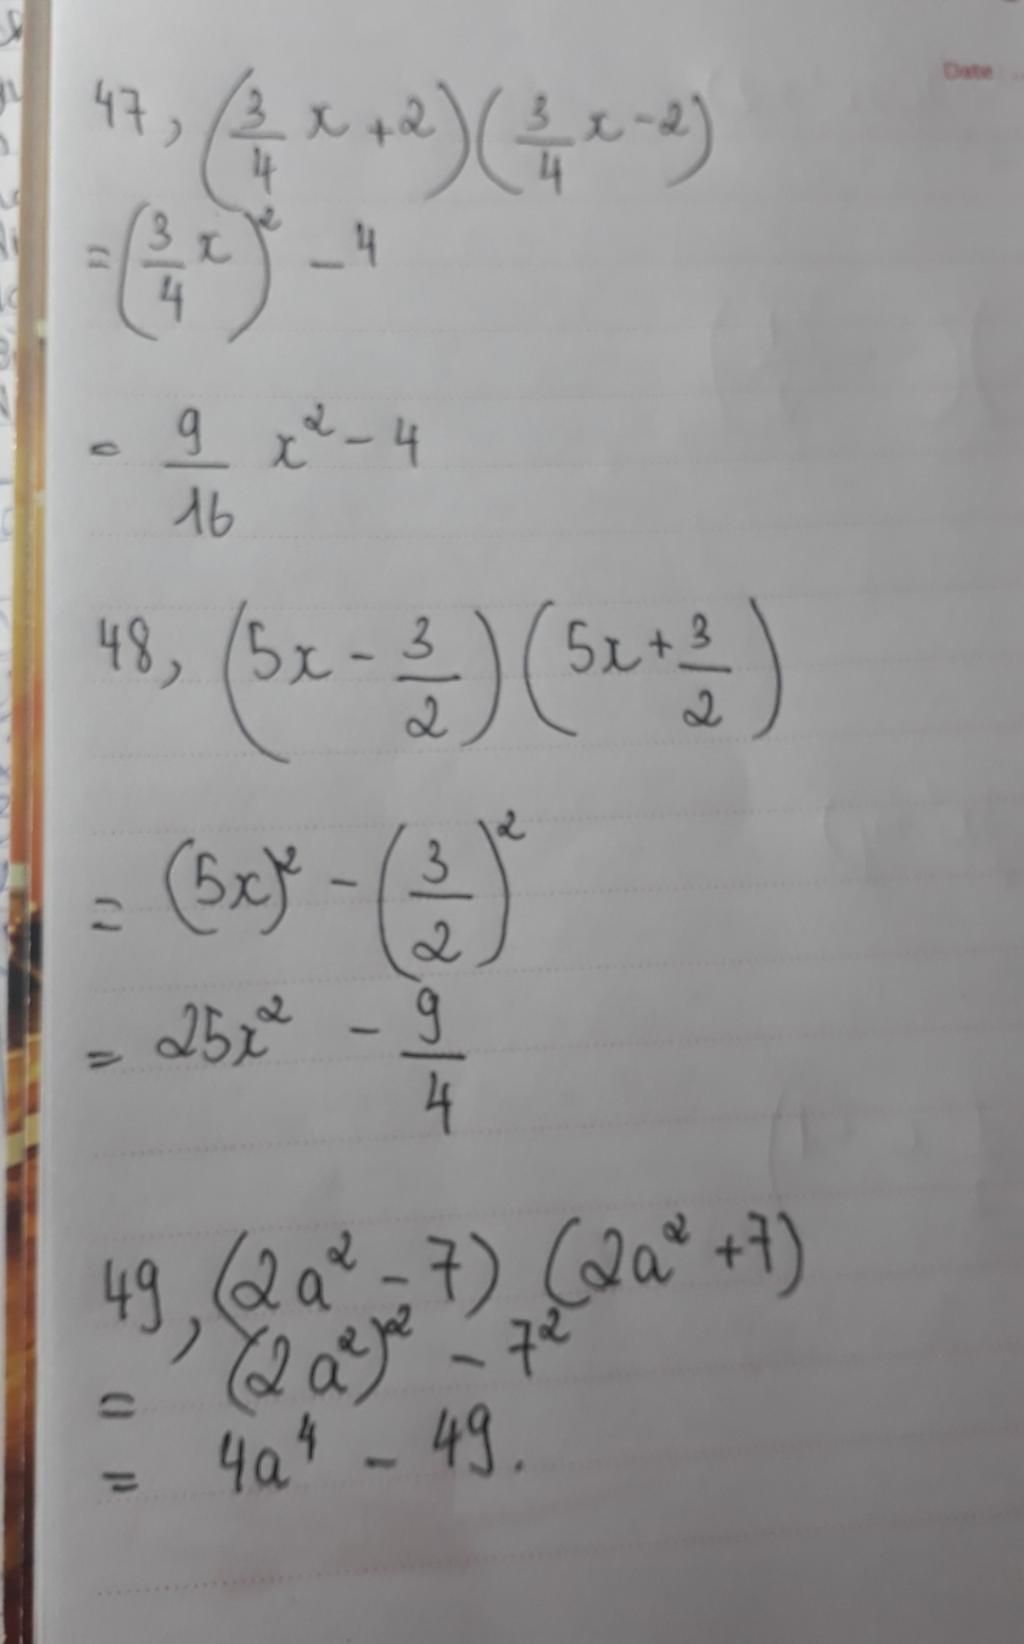 Date :
47, (3/4 x + 2)(3/4 x - 2)
= (3/4 x)² - 4
= 9/16 x² - 4
48, (5x - 3/2)(5x + 3/2)
= (5x)² - (3/2)²
= 25x² - 9/4
49, (2a² - 7) (2a² + 7)
= (2a²)² - 7²
= 4a⁴ - 49.